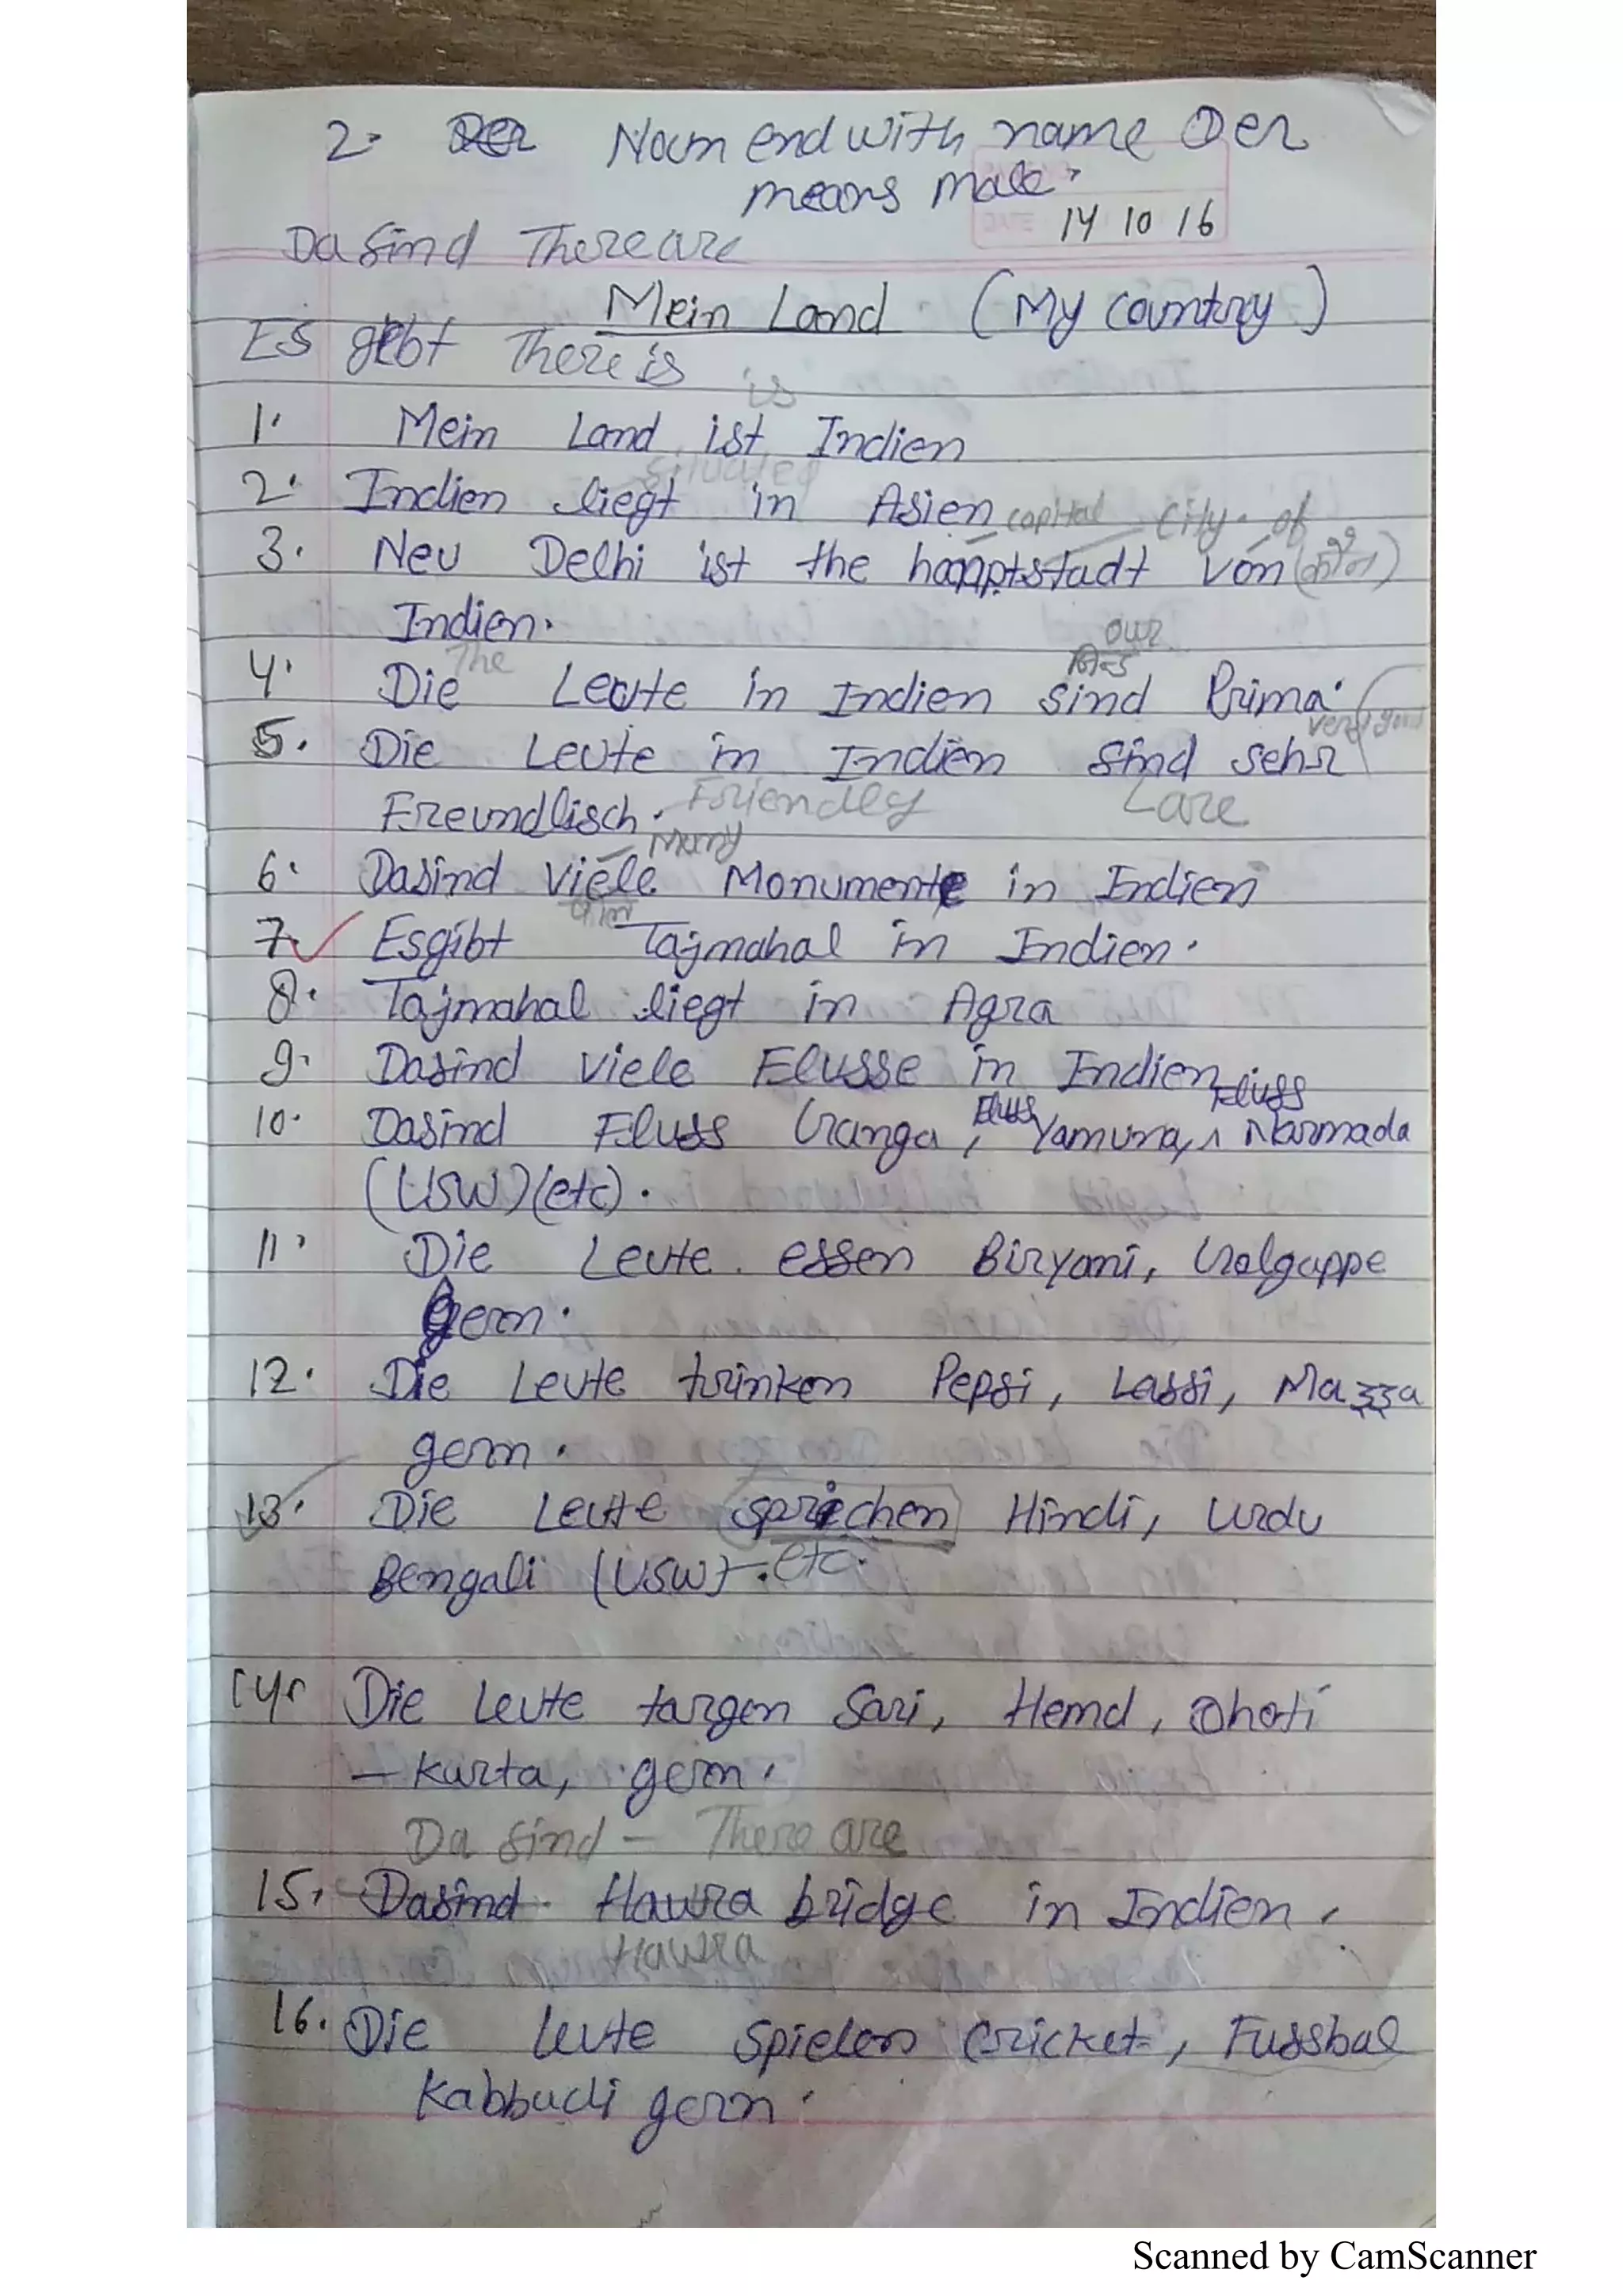 2. Der Noun end with name Der
means male.
14 10 16
Da sind There are
Mein Land (My country)
Es gibt There is
is
1. Mein Land ist Indien
situated
2. Indien liegt in Asien
capital city of
3. Neu Delhi ist the hauptstadt von
Indien.
The our
4. Die Leute in Indien sind Prima.
very good
5. Die Leute in Indien sind sehr
Freundlisch. Friendly are
Many
6. Dasind viele Monumente in Indien
7. Esgibt Tajmahal in Indien.
8. Tajmahal liegt in Agra
9. Dasind viele Flusse in Indien
10. Dasind Fluss Ganga, Fluss Yamuna, Fluss Narmada
(USW) (etc).
11. Die Leute essen Biryani, Golgappe
gern.
12. Die Leute trinken Pepsi, Lassi, Mazza
gern.
13. Die Leute sprichen Hindi, Urdu
Bengali (USW) . etc.
14. Die Leute targen Sari, Hemd, Dhoti
- kurta, gern.
Da sind - There are
15. Dasind Hawra bridge in Indien.
Hawra
16. Die leute spielen Cricket, Fussbal
Kabbudi gern.
Scanned by CamScanner